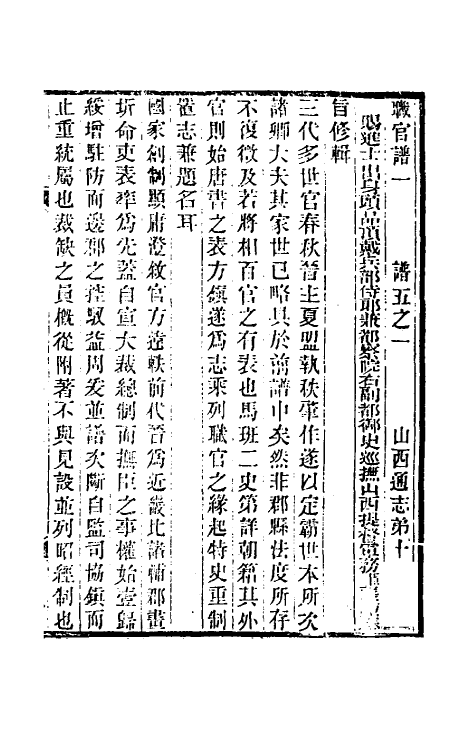 職官譜一 譜五之一 山西通志第十
賜進士出身頭品頂戴兵部侍郎兼都察院右副都御史巡撫山西提督軍務
旨修輯
三代多世官春秋晉主夏盟執秩肇作遂以定霸世本所次
諸卿大夫其家世已略具於前譜中矣然非郡縣法度所存
不復徵及若將相百官之有表也馬班二史第詳朝籍其外
官則始唐書之表方鎮遂為志乘列職官之緣起特史重制
置志兼題名耳
國家創制顯庸澄敘官方遠軼前代晉為近畿比諸輔郡畫
圻命吏表率為先蓋自宣大裁總制而撫臣之事權始壹歸
綏增駐防而邊郡之控馭益周爰並譜次斷自監司協鎮而
止重統屬也裁缺之員概從附著不與見設並列昭經制也